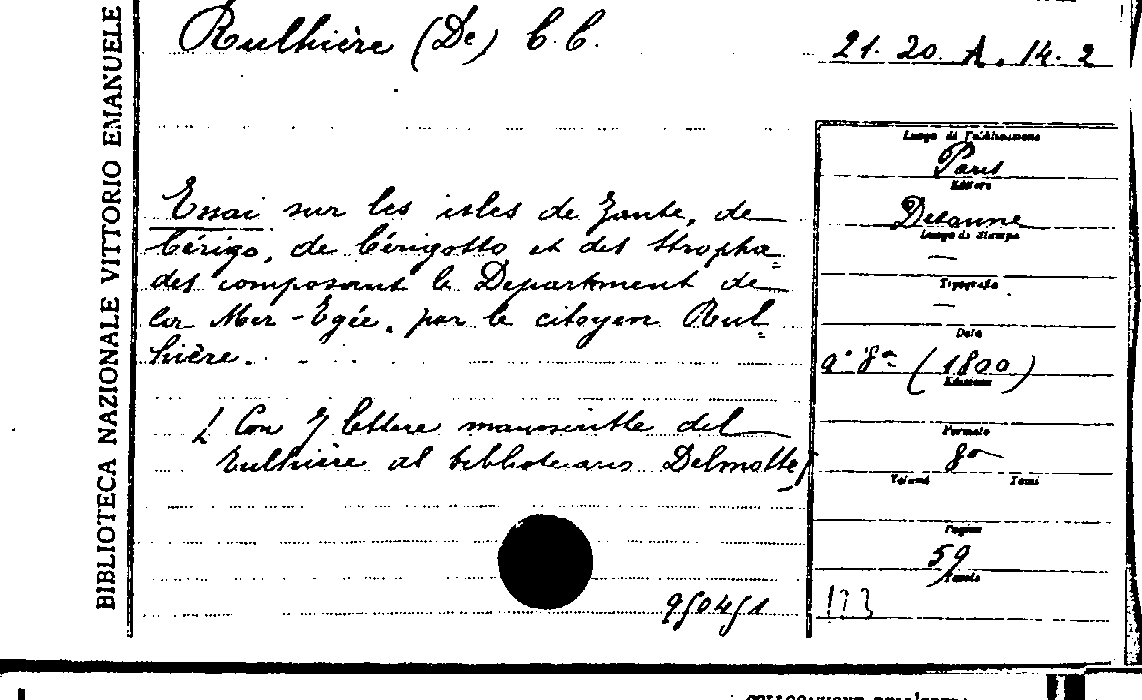 BIBLIOTECA NAZIONALE VITTORIO EMANUELE
Rulhière (De) C. C.
21. 20. A. 14. 2
Essai sur les isles de Zante, de
Cérigo, de Cérigotto et des Stropha=
des composant le Department de
la Mer-Egée, par le citoyen Rul=
hière.
[Con 7 lettere manoscritte del
Rulhière al bibliotecario Delmotte]
950451
Luogo di Pubblicazione
Paris
Editore
Desenne
Luogo di Stampa
—
Tipografo
—
Data
a° 8° (1800)
Edizione
Formato
8°
Volumi Tomi
Pagine
59
Tavole